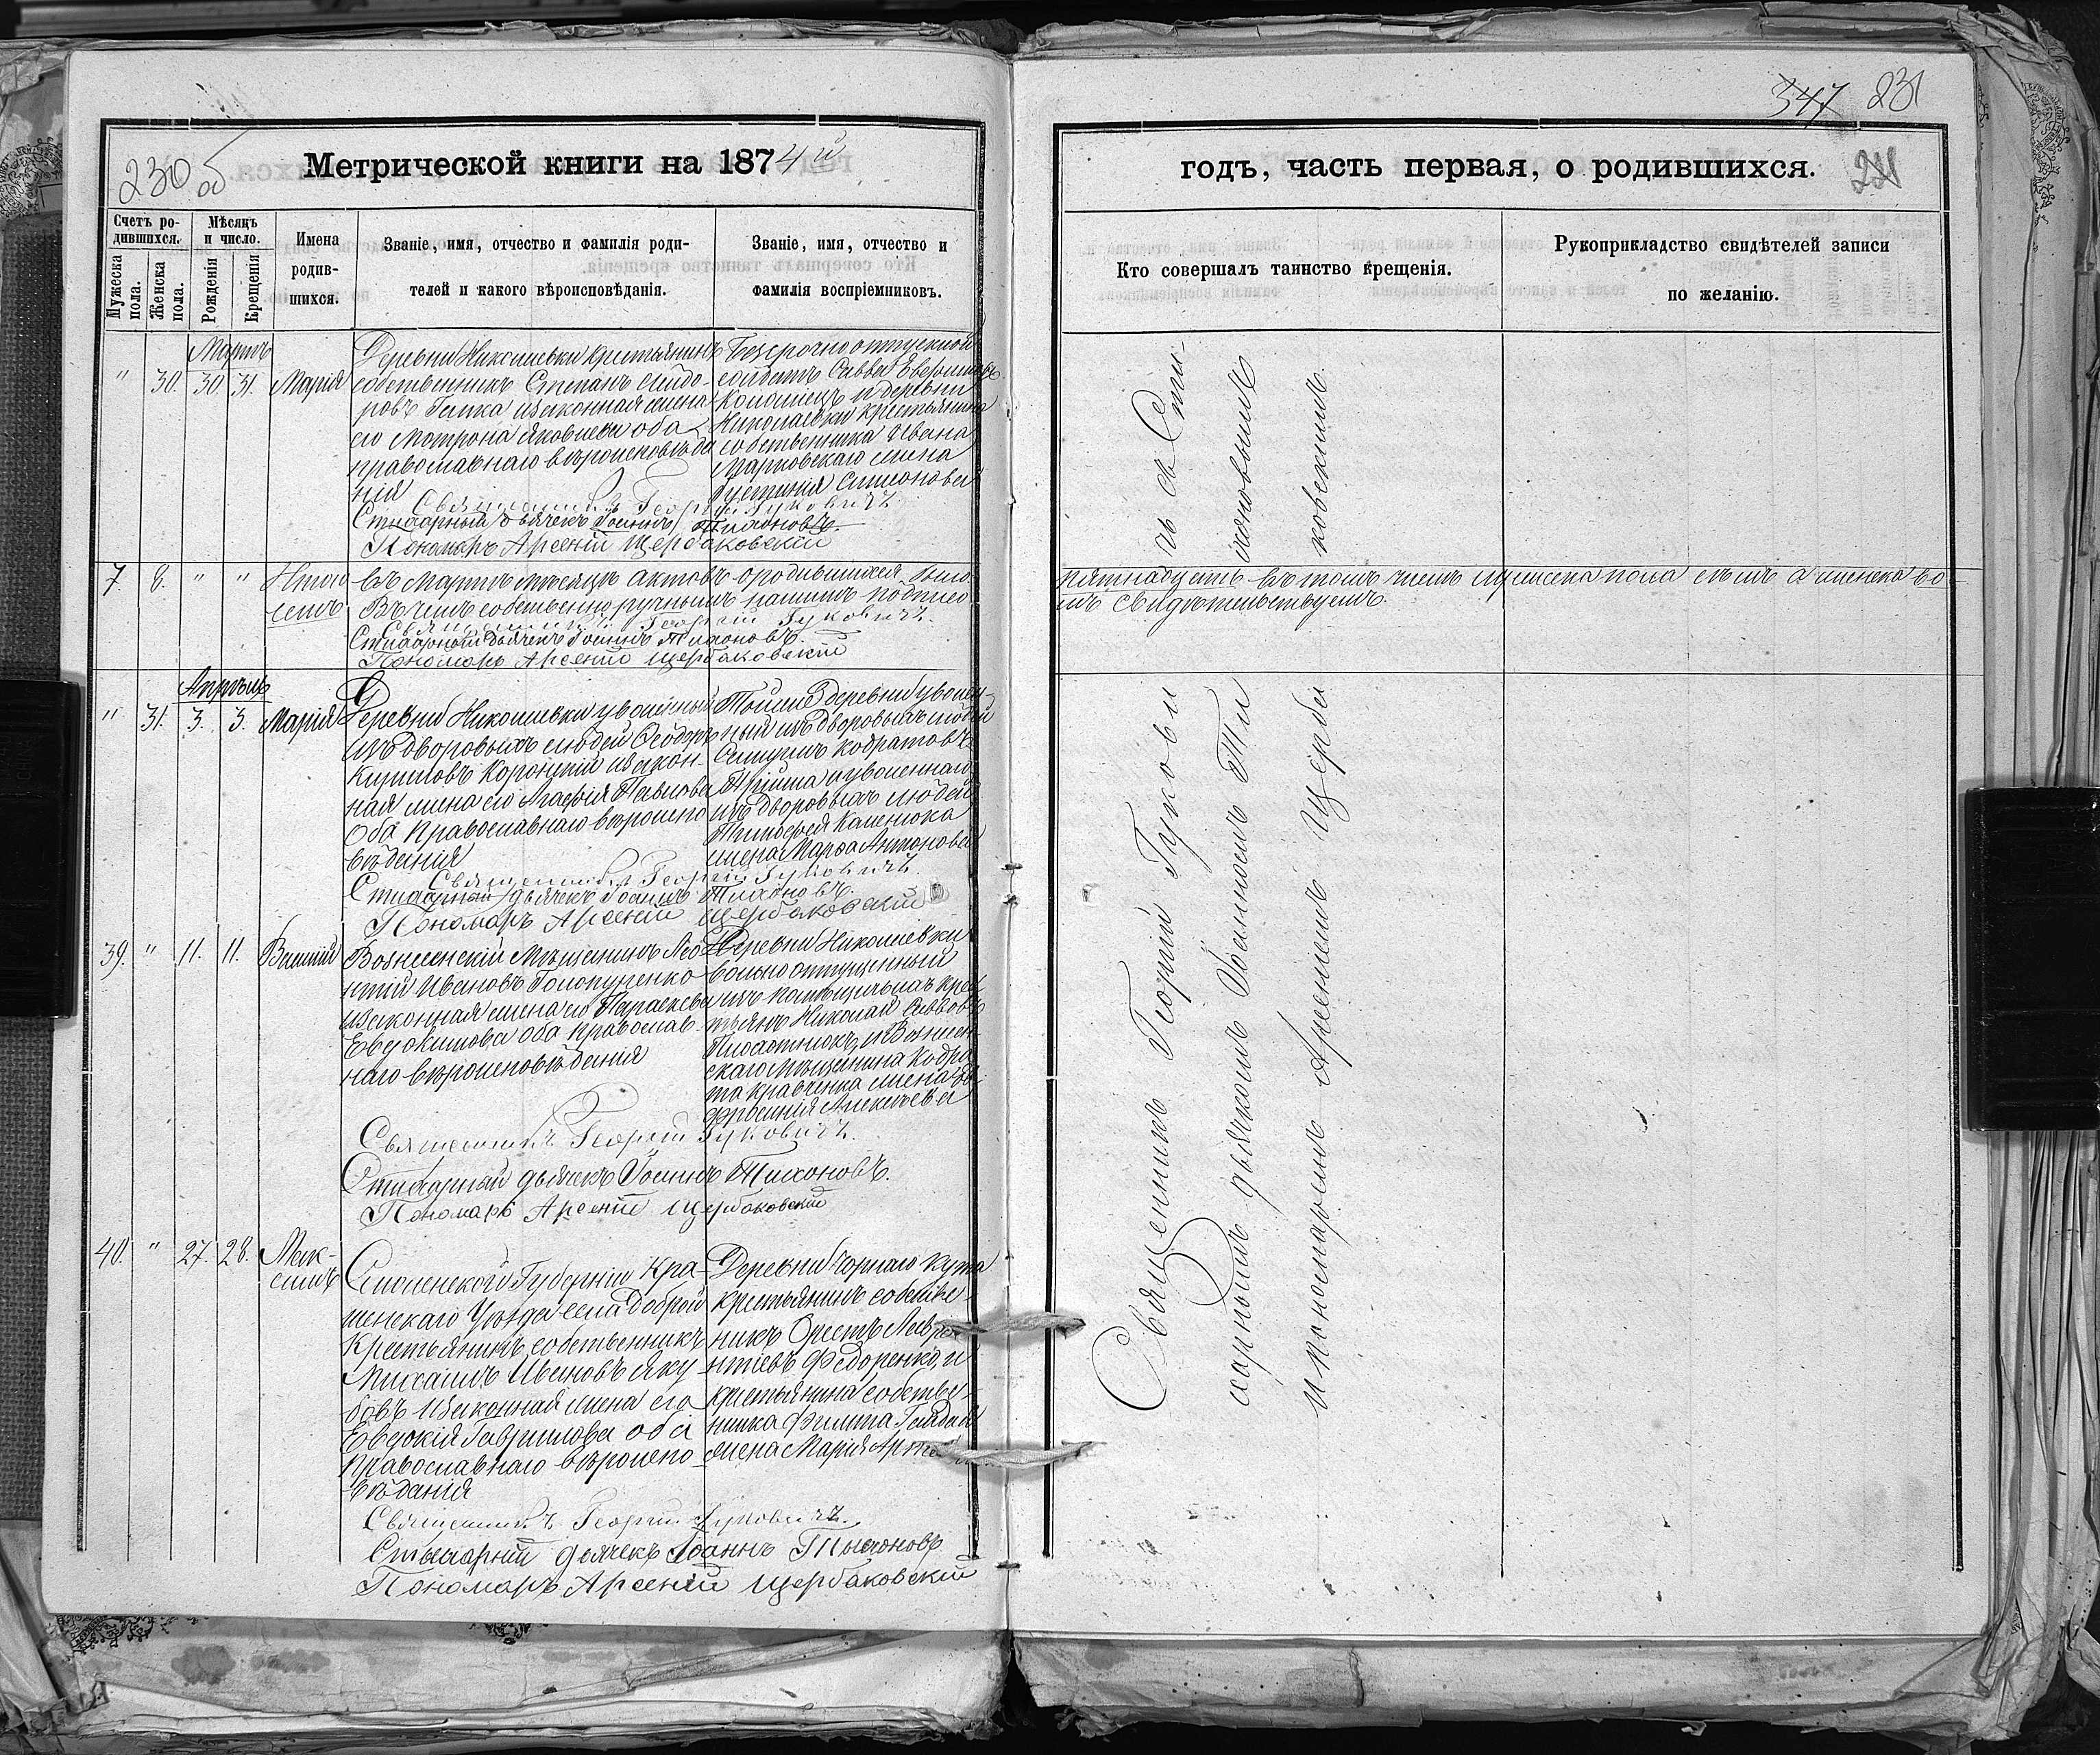 230 об
Метрической книги на 1874й
Счетъ ро-
дившихся.
Мѣсяцъ
и число.
Мужеска
пола.
Женска
пола.
Рожденія
Крещенія
Имена
родив-
шихся.
Званіе, имя, отчество и фамилія роди-
телей и какого вѣроисповѣданія.
Званіе, имя, отчество и
фамилія воспріемниковъ.
Мартъ
" 30. 30. 31. Марія
Деревни Николаевки крестьянинъ
собственникъ Степанъ Сидо-
ровъ и законная жена
его Матрона Яковлева оба
православнаго вѣроисповѣда
нія
Безсрочноотпускной
солдатъ Савва
и деревни
Николаевки крестьянина
собственника Ивана
Марковскаго жена
Іустинія Симеонова
Священникъ Георгій Гуковичъ
Стихарный дьячекъ Іоаннъ Тихоновъ.
Пономарь Арсеній Щербаковскій
7. 8. " " Итого
семь
въ Мартѣ мѣсяцѣ актовъ о родившихся было
Въ чемъ собственноручнымъ нашимъ подписо
Священникъ Георгій Гуковичъ.
Стихарный дьячекъ Іоаннъ Тихоновъ.
Пономарь Арсеній Щербаковскій
Апрѣль
" 31. 3. 3. Марія
Деревни Николаевки уволенный
изъ дворовыхъ людей Ѳеодоръ
Кириловъ и закон-
ная жена его Агафія Павлова
Оба Православнаго вѣроиспо
вѣданія
Тойже деревни уволен
ный изъ дворовыхъ людей
Кодратовъ
и уволеннаго
изъ дворовыхъ людей
Тимофея Каленюка
жена Марфа Антонова
Священникъ Георгій Гуковичъ.
Стихарный дьячекъ Іоаннъ Тихоновъ.
Пономарь Арсеній Щербаковскій
39. " 11. 11. Василій
Вознесенскій Мѣщанинъ Лео
нтій Ивановъ
и законная жена его Параскева
Евдокимова оба православ-
наго вѣроисповѣданія
Деревни Николаевки
вольноотпущенный
изъ помѣщичьихъ крес
тьянъ Николай Саввовъ
и Вознесен
скаго мѣщанина Кодра
та Кравченка жена Ев
фросинія Алексѣева
Священникъ Георгій Гуковичъ.
Стихарный дьячекъ Іоаннъ Тихоновъ.
Пономарь Арсеній Щербаковскій
40. " 27. 28. Мак-
симъ
Смоленской Губерніи Кра-
снинскаго Уѣзда села Доброй
Крестьянинъ собственникъ
Михаилъ Ивановъ Яку
бовъ и законная жена его
Евдокія Гаврилова оба
Православнаго вѣроиспо
вѣданія
Деревни Чорнаго Кута
крестьянинъ собстве-
никъ Орестъ Лавре
нтіевъ Федоренко, и
крестьянина собстве-
нника Филипа
жена Марія
Священникъ Георгій Гуковичъ.
Стихарній дьячекъ Іоаннъ Тыхоновъ
Пономарь Арсеній Щербаковскій
347 231
годъ, часть первая, о родившихся.
231
Кто совершалъ таинство крещенія.
Рукоприкладство свидѣтелей записи
по желанію.
пятнадцать въ томъ числѣ мужеска пола семь а женска во
мъ свидѣтельствуемъ.
Священникъ Георгій Гукови
чъ съ Сти-
харнымъ дьячкомъ Іоанномъ Ти
хоновымъ
и пономаремъ Арсеніемъ Щерба
ковскимъ.